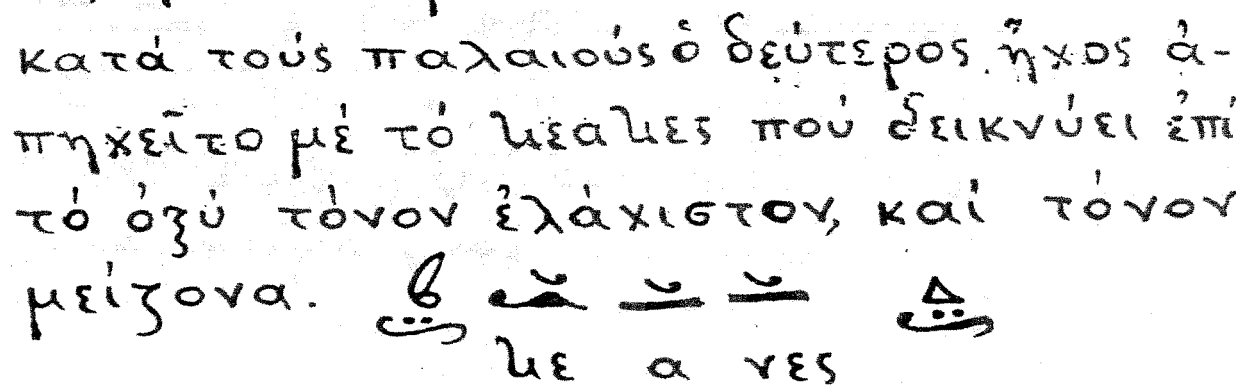 κατά τούς παλαιούς ὁ δεύτερος ἦχος ἀ-
πηχεῖτο μέ τό νεανες πού δεικνύει ἐπί
τό ὀξύ τόνον ἐλάχιστον, καί τόνον
μείζονα. β Δ
νε α νες